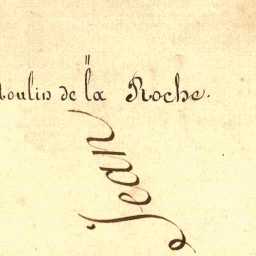 Moulin de la Roche.
Jean